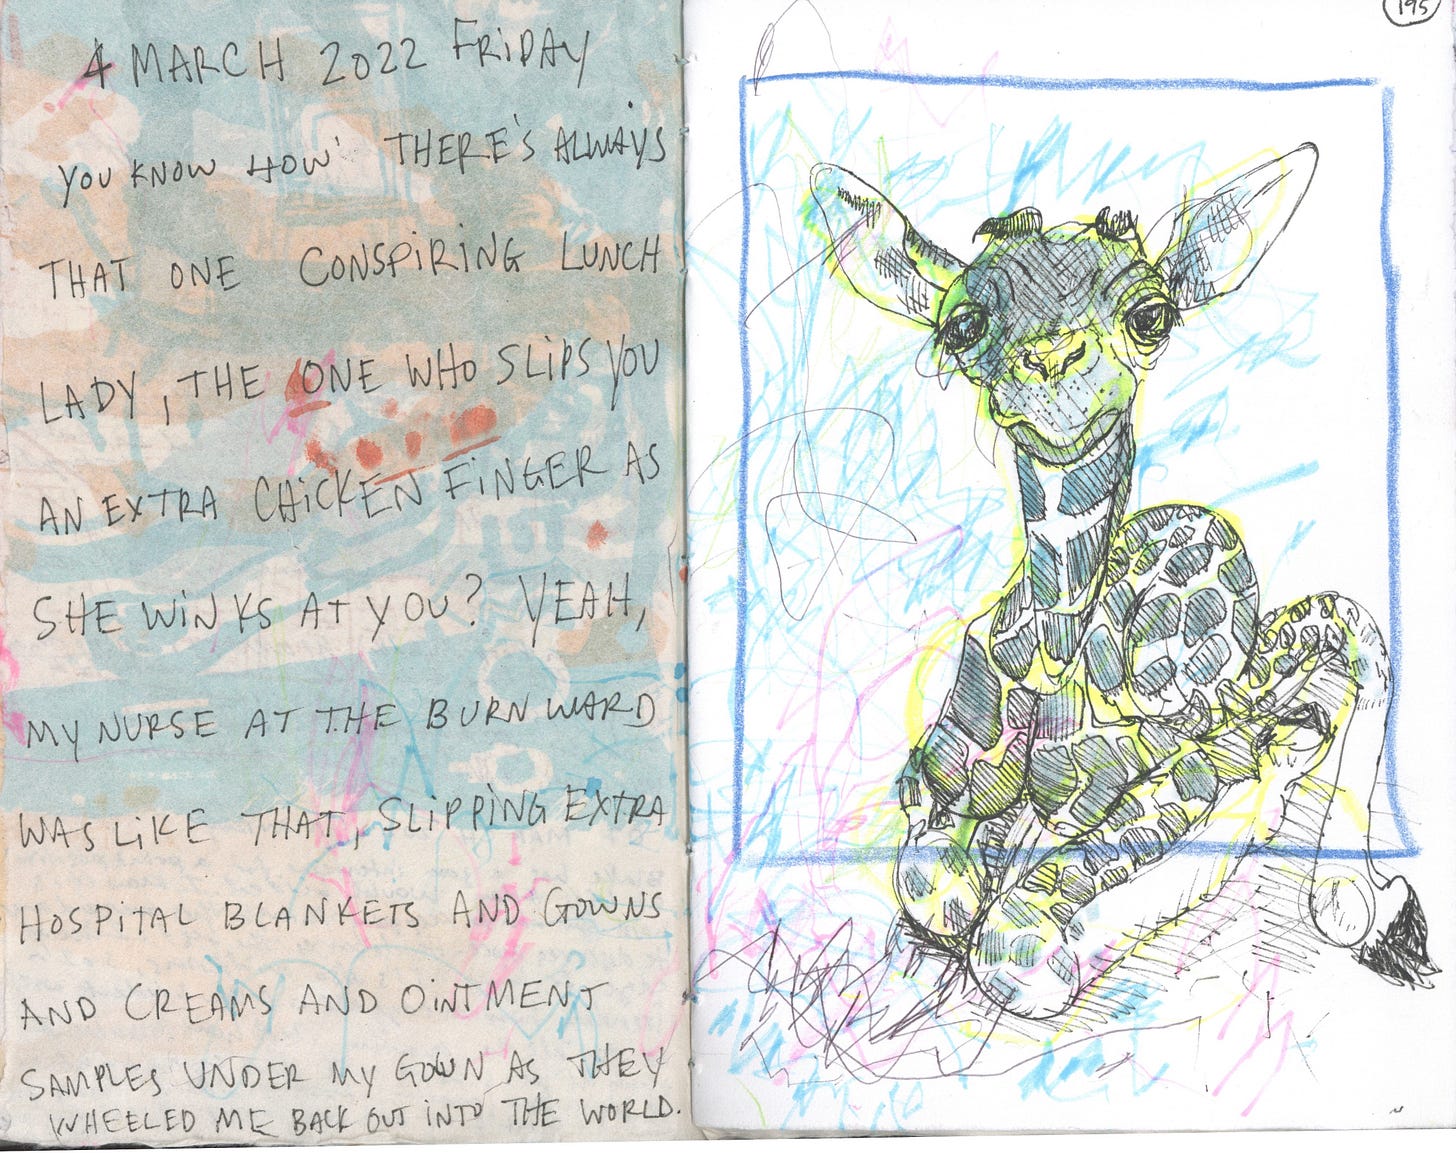 195
4 MARCH 2022 FRIDAY
YOU KNOW HOW THERE'S ALWAYS
THAT ONE CONSPIRING LUNCH
LADY, THE ONE WHO SLIPS YOU
AN EXTRA CHICKEN FINGER AS
SHE WINKS AT YOU? YEAH,
MY NURSE AT THE BURN WARD
WAS LIKE THAT, SLIPPING EXTRA
HOSPITAL BLANKETS AND GOWNS
AND CREAMS AND OINTMENT
SAMPLES UNDER MY GOWN AS THEY
WHEELED ME BACK OUT INTO THE WORLD.